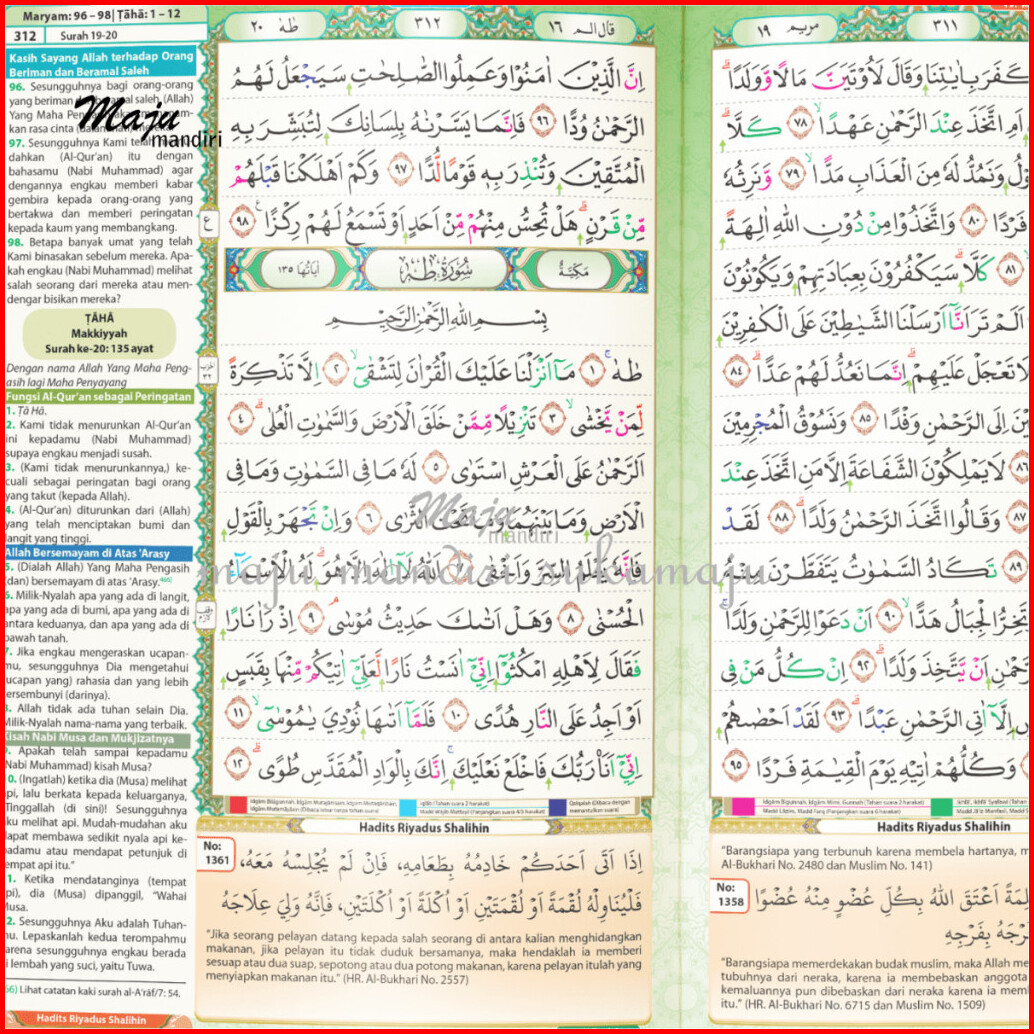 Maryam: 96 – 98| Ṭāhā: 1 – 12
312
Surah 19-20
Kasih Sayang Allah terhadap Orang
Beriman dan Beramal Saleh
96. Sesungguhnya bagi orang-orang
yang beriman dan beramal saleh, (Allah)
Yang Maha
kan rasa cinta (dalam hati) mereka.
97. Sesungguhnya Kami telah
dahkan (Al-Qur'an) itu dengan
bahasamu (Nabi Muhammad) agar
dengannya engkau memberi kabar
gembira kepada orang-orang yang
bertakwa dan memberi peringatan
kepada kaum yang membangkang.
98. Betapa banyak umat yang telah
Kami binasakan sebelum mereka. Apa-
kah engkau (Nabi Muhammad) melihat
salah seorang dari mereka atau men-
dengar bisikan mereka?
Maju
mandiri
ṬĀHĀ
Makkiyyah
Surah ke-20: 135 ayat
Dengan nama Allah Yang Maha Peng-
asih lagi Maha Penyayang
Fungsi Al-Qur'an sebagai Peringatan
1. Ṭā Hā.
2. Kami tidak menurunkan Al-Qur'an
ini kepadamu (Nabi Muhammad)
supaya engkau menjadi susah.
3. (Kami tidak menurunkannya,) ke-
cuali sebagai peringatan bagi orang
yang takut (kepada Allah).
4. (Al-Qur'an) diturunkan dari (Allah)
yang telah menciptakan bumi dan
langit yang tinggi.
Allah Bersemayam di Atas 'Arasy
5. (Dialah Allah) Yang Maha Pengasih
(dan) bersemayam di atas 'Arasy.466)
6. Milik-Nyalah apa yang ada di langit,
apa yang ada di bumi, apa yang ada di
antara keduanya, dan apa yang ada di
bawah tanah.
7. Jika engkau mengeraskan ucapan-
mu, sesungguhnya Dia mengetahui
(ucapan yang) rahasia dan yang lebih
tersembunyi (darinya).
8. Allah tidak ada tuhan selain Dia.
Milik-Nyalah nama-nama yang terbaik.
Kisah Nabi Musa dan Mukjizatnya
9. Apakah telah sampai kepadamu
(Nabi Muhammad) kisah Musa?
10. (Ingatlah) ketika dia (Musa) melihat
api, lalu berkata kepada keluarganya,
"Tinggallah (di sini)! Sesungguhnya
aku melihat api. Mudah-mudahan aku
dapat membawa sedikit nyala api ke-
padamu atau mendapat petunjuk di
tempat api itu."
11. Ketika mendatanginya (tempat
api), dia (Musa) dipanggil, "Wahai
Musa.
12. Sesungguhnya Aku adalah Tuhan-
mu. Lepaskanlah kedua terompahmu
karena sesungguhnya engkau berada
di lembah yang suci, yaitu Tuwa.
466) Lihat catatan kaki surah al-A'rāf/7: 54.
Hadits Riyadus Shalihin
قال الم ١٦
٣١٢
طٰهٰ ٢٠
اِنَّ الَّذِيْنَ اٰمَنُوْا وَعَمِلُوا الصّٰلِحٰتِ سَيَجْعَلُ لَهُمُ
الرَّحْمٰنُ وُدًّا ٩٦ فَاِنَّمَا يَسَّرْنٰهُ بِلِسَانِكَ لِتُبَشِّرَ بِهِ
الْمُتَّقِيْنَ وَتُنْذِرَ بِهٖ قَوْمًا لُّدًّا ٩٧ وَكَمْ اَهْلَكْنَا قَبْلَهُمْ
مِّنْ قَرْنٍ هَلْ تُحِسُّ مِنْهُمْ مِّنْ اَحَدٍ اَوْ تَسْمَعُ لَهُمْ رِكْزًا ٩٨
ع
مَكِّيَّةٌ
سُوْرَةُ طٰهٰ
اٰيَاتُهَا ١٣٥
بِسْمِ اللّٰهِ الرَّحْمٰنِ الرَّحِيْمِ
طٰهٰ ١ مَآ اَنْزَلْنَا عَلَيْكَ الْقُرْاٰنَ لِتَشْقٰٓى ٢ اِلَّا تَذْكِرَةً
لِّمَنْ يَّخْشٰى ٣ تَنْزِيْلًا مِّمَّنْ خَلَقَ الْاَرْضَ وَالسَّمٰوٰتِ الْعُلٰى ٤
اَلرَّحْمٰنُ عَلَى الْعَرْشِ اسْتَوٰى ٥ لَهٗ مَا فِى السَّمٰوٰتِ وَمَا فِى
الْاَرْضِ وَمَا بَيْنَهُمَا وَمَا تَحْتَ الثَّرٰى ٦ وَاِنْ تَجْهَرْ بِالْقَوْلِ
فَاِنَّهٗ يَعْلَمُ السِّرَّ وَاَخْفٰى ٧ اَللّٰهُ لَآ اِلٰهَ اِلَّا هُوَ لَهُ الْاَسْمَاۤءُ
الْحُسْنٰى ٨ وَهَلْ اَتٰىكَ حَدِيْثُ مُوْسٰى ٩ اِذْ رَاٰ نَارًا
فَقَالَ لِاَهْلِهِ امْكُثُوْٓا اِنِّيْٓ اٰنَسْتُ نَارًا لَّعَلِّيْٓ اٰتِيْكُمْ مِّنْهَا بِقَبَسٍ
اَوْ اَجِدُ عَلَى النَّارِ هُدًى ١٠ فَلَمَّآ اَتٰىهَا نُوْدِيَ يٰمُوْسٰٓى ١١
اِنِّيْٓ اَنَا۠ رَبُّكَ فَاخْلَعْ نَعْلَيْكَ اِنَّكَ بِالْوَادِ الْمُقَدَّسِ طُوًى ١٢
Maju
mandiri
maju mandiri sukumaju
Hadits Riyadus Shalihin
No:
1361
إِذَا أَتَى أَحَدَكُمْ خَادِمُهُ بِطَعَامِهِ، فَإِنْ لَمْ يُجْلِسْهُ مَعَهُ،
فَلْيُنَاوِلْهُ لُقْمَةً أَوْ لُقْمَتَيْنِ أَوْ أُكْلَةً أَوْ أُكْلَتَيْنِ، فَإِنَّهُ وَلِيَ عِلَاجَهُ
"Jika seorang pelayan datang kepada salah seorang di antara kalian menghidangkan
makanan, jika pelayan itu tidak duduk bersamanya, maka hendaklah ia memberi
sesuap atau dua suap, sepotong atau dua potong makanan, karena pelayan itulah yang
menyiapkan makanan itu." (HR. Al-Bukhari No. 2557)
٣١١
مريم ١٩
كَفَرَ بِاٰيٰتِنَا وَقَالَ لَاُوْتَيَنَّ مَالًا وَّوَلَدًا
اَمِ اتَّخَذَ عِنْدَ الرَّحْمٰنِ عَهْدًا ٧٨ كَلَّا
وَنَمُدُّ لَهٗ مِنَ الْعَذَابِ مَدًّا ٧٩ وَّنَرِثُهٗ
فَرْدًا ٨٠ وَاتَّخَذُوْا مِنْ دُوْنِ اللّٰهِ اٰلِهَةً
٨١ كَلَّا سَيَكْفُرُوْنَ بِعِبَادَتِهِمْ وَيَكُوْنُوْنَ
اَلَمْ تَرَ اَنَّآ اَرْسَلْنَا الشَّيٰطِيْنَ عَلَى الْكٰفِرِيْنَ
تَعْجَلْ عَلَيْهِمْ اِنَّمَا نَعُدُّ لَهُمْ عَدًّا ٨٤
اِلَى الرَّحْمٰنِ وَفْدًا ٨٥ وَنَسُوْقُ الْمُجْرِمِيْنَ
٨٦ لَا يَمْلِكُوْنَ الشَّفَاعَةَ اِلَّا مَنِ اتَّخَذَ عِنْدَ
٨٧ وَقَالُوا اتَّخَذَ الرَّحْمٰنُ وَلَدًا ٨٨ لَقَدْ
٨٩ تَكَادُ السَّمٰوٰتُ يَتَفَطَّرْنَ
وَتَخِرُّ الْجِبَالُ هَدًّا ٩٠ اَنْ دَعَوْا لِلرَّحْمٰنِ وَلَدًا
اَنْ يَّتَّخِذَ وَلَدًا ٩٢ اِنْ كُلُّ مَنْ فِى
اِلَّآ اٰتِى الرَّحْمٰنِ عَبْدًا ٩٣ لَقَدْ اَحْصٰىهُمْ
وَكُلُّهُمْ اٰتِيْهِ يَوْمَ الْقِيٰمَةِ فَرْدًا ٩٥
Hadits Riyadus Shalihin
"Barangsiapa yang terbunuh karena membela hartanya,
Al-Bukhari No. 2480 dan Muslim No. 141)
No:
1358
أَعْتَقَ اللّٰهُ بِكُلِّ عُضْوٍ مِنْهُ عُضْوًا
فَرْجَهُ بِفَرْجِهِ
"Barangsiapa memerdekakan budak muslim, maka Allah
tubuhnya dari neraka, karena ia membebaskan anggota
kemaluannya pun dibebaskan dari neraka karena ia
itu." (HR. Al-Bukhari No. 6715 dan Muslim No. 1509)